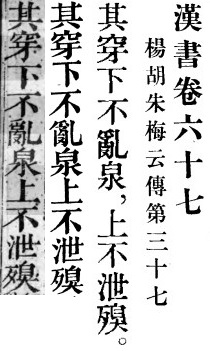 漢書卷六十七
楊胡朱梅云傳第三十七
其穿下不亂泉，上不泄殠。
其穿下不亂泉上不泄殠
其穿下不亂泉上不泄殠